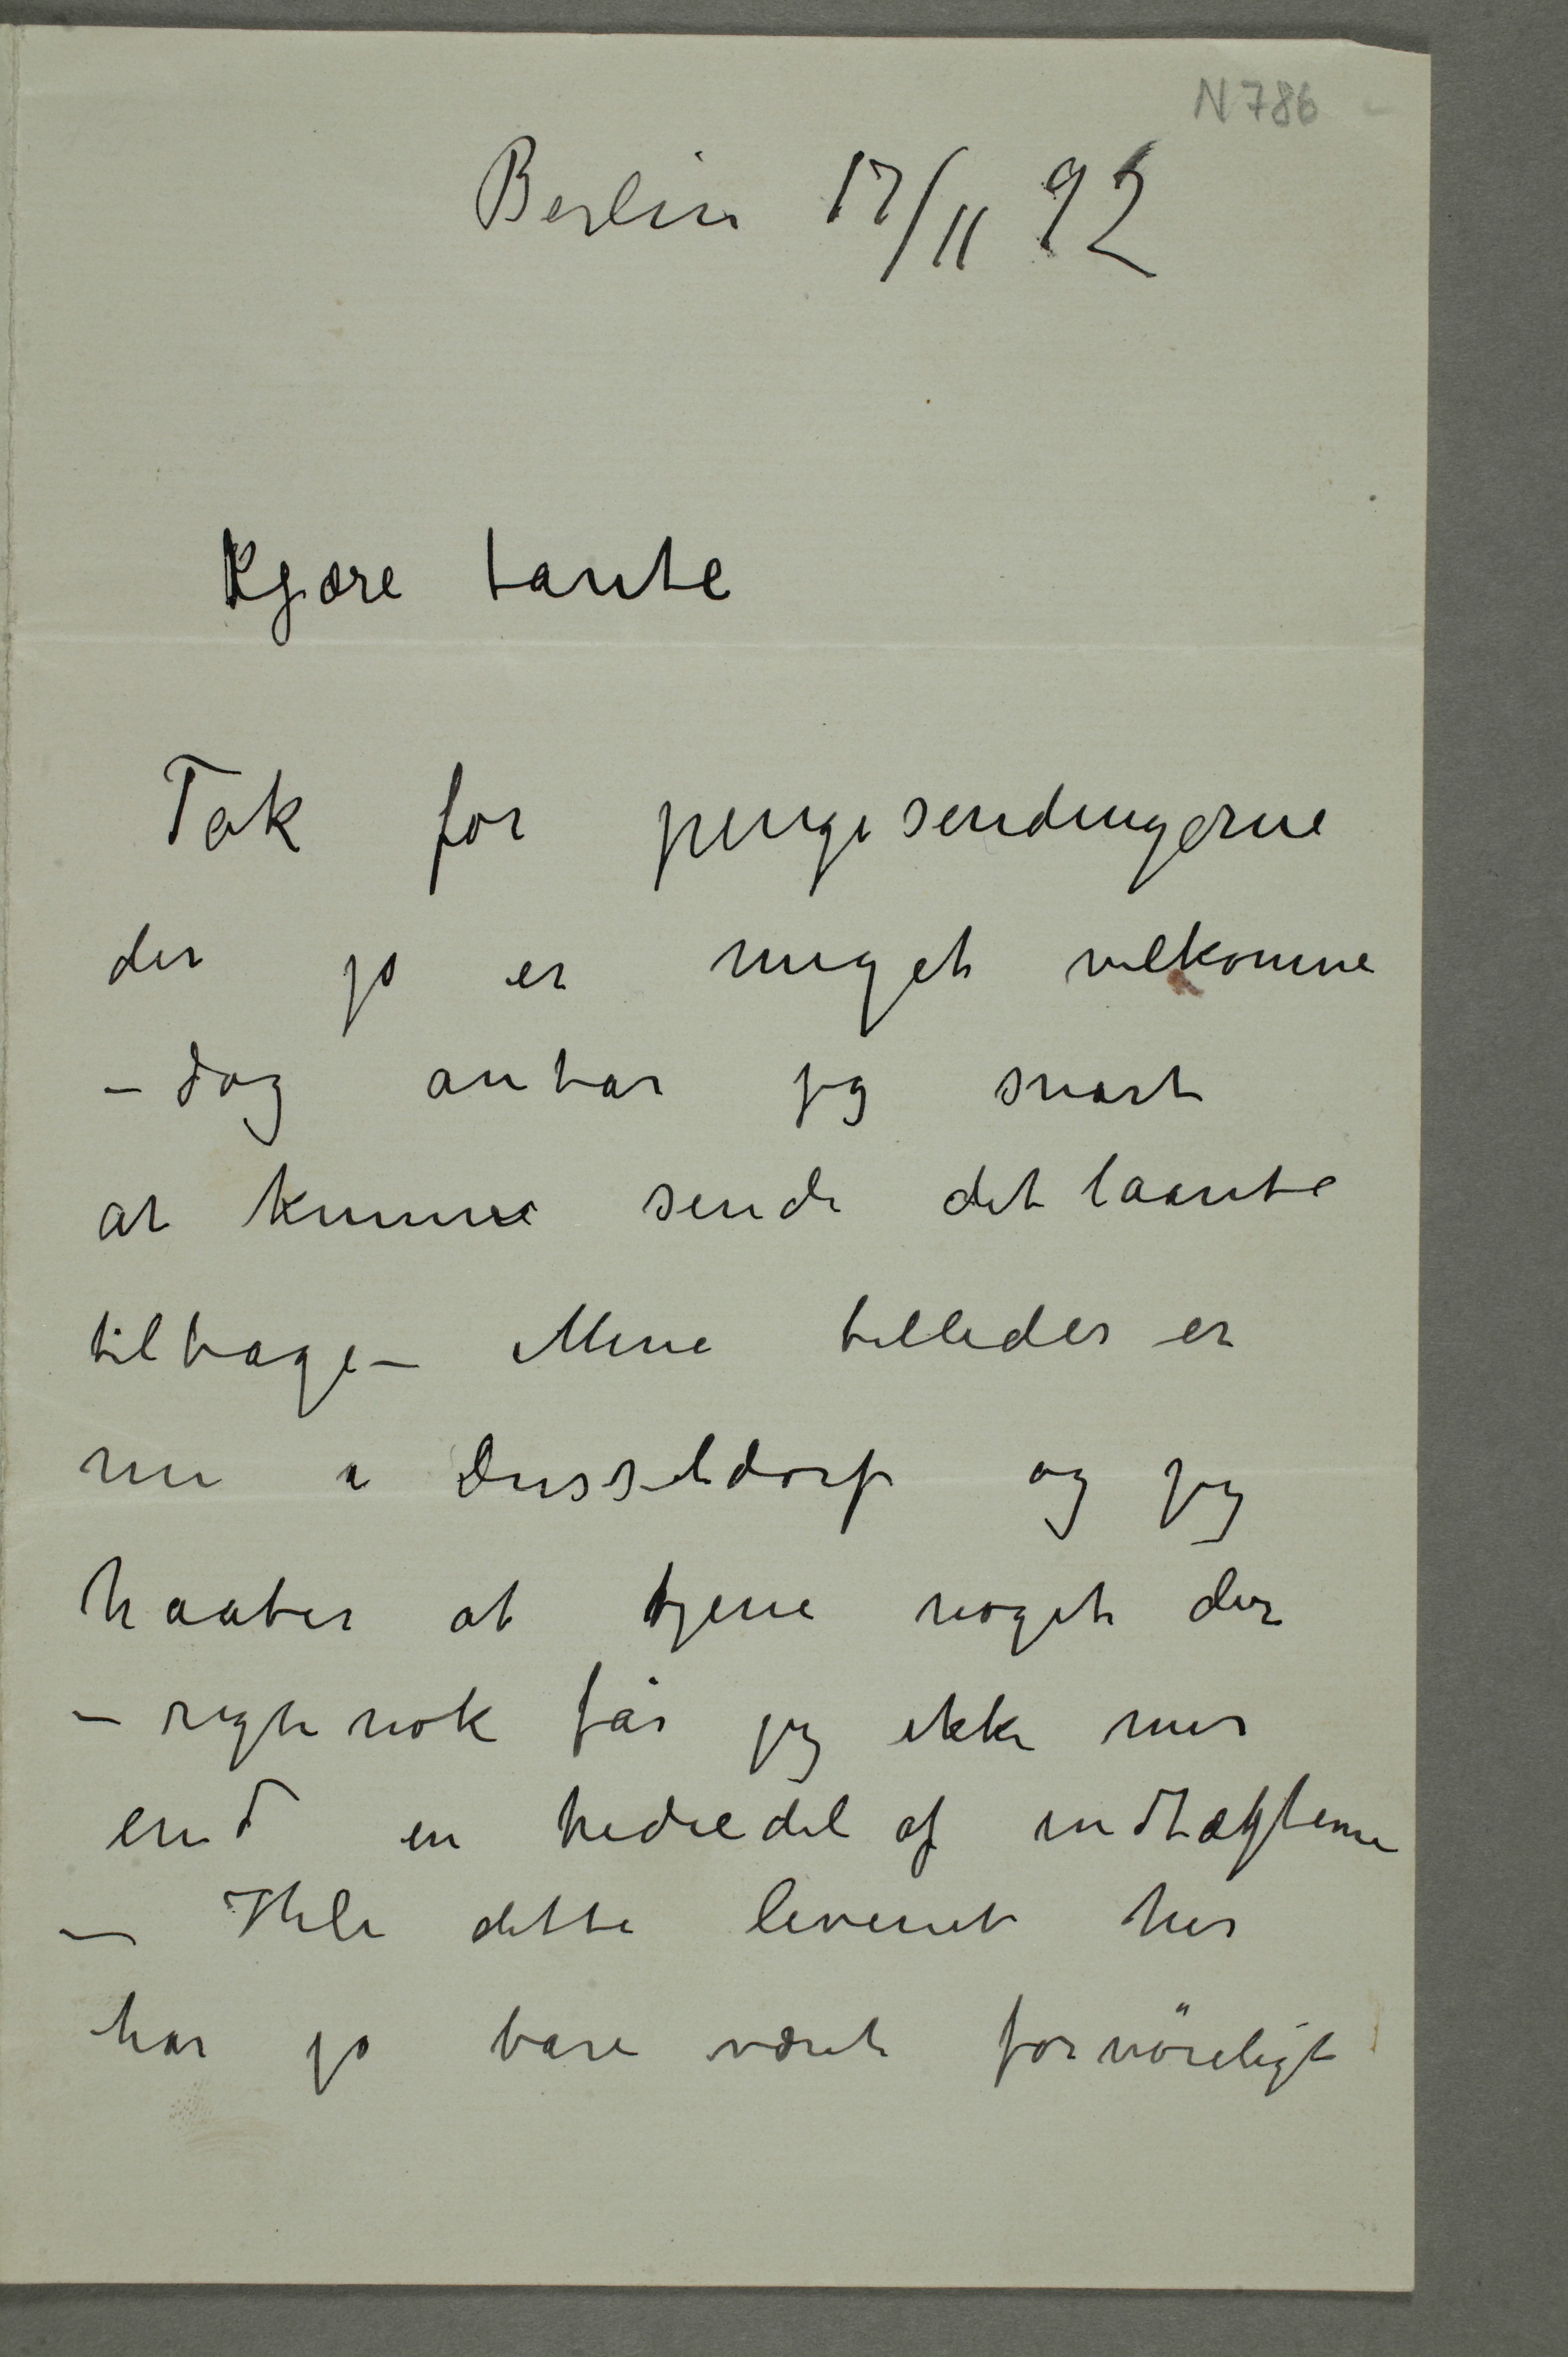 N 786
Berlin 17/11 92
Kjære tante
Tak for pengesendingerne
der jo er meget velkomne
– dog antar jeg snart
at kunne sende det laante
tilbage – Mine billeder er
nu i Dusseldorf og jeg
haaber at tjene noget der
– rigtinok får jeg ikke mer
end en tredjedel af indtægterne
– Hele dette levenet her
har jo bare været fornöieligt